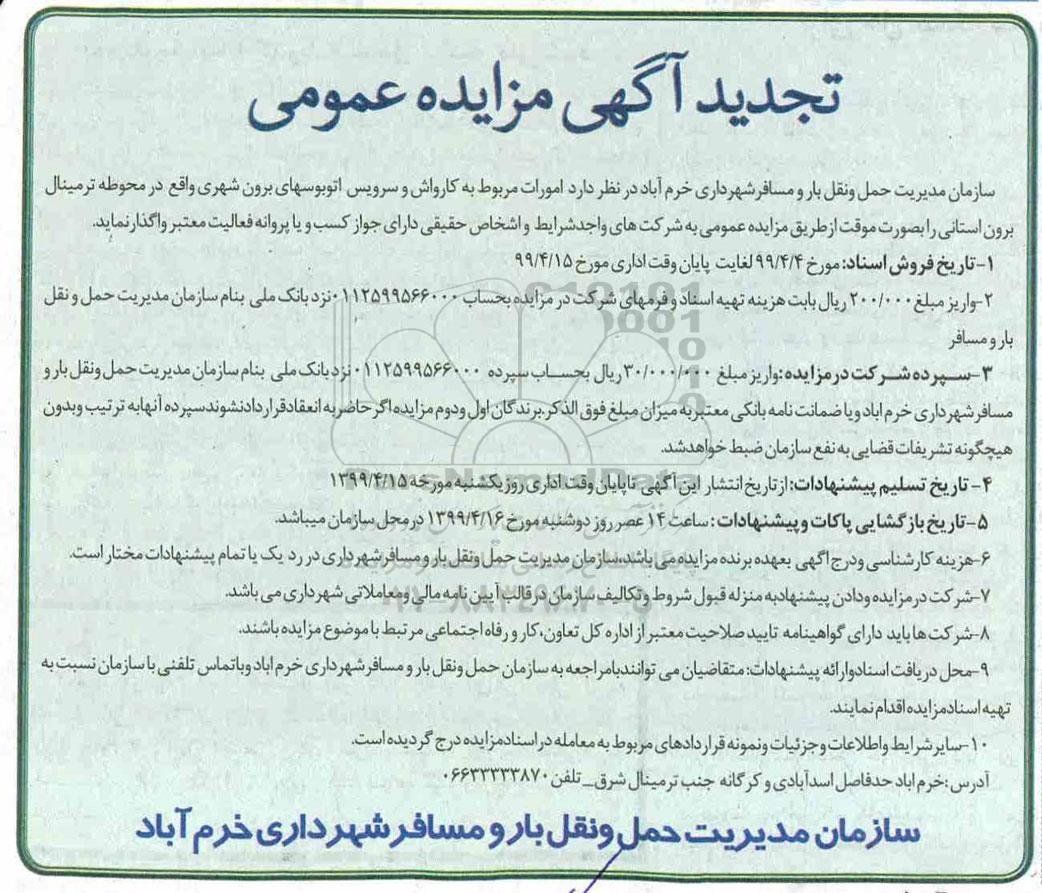 تجدید آگهی مزایده عمومی
سازمان مدیریت حمل ونقل بار و مسافرشهرداری خرم آباد در نظر دارد امورات مربوط به کارواش و سرویس اتوبوسهای برون شهری واقع در محوطه ترمینال
برون استانی را بصورت موقت ازطریق مزایده عمومی به شرکت های واجدشرایط و اشخاص حقیقی دارای جواز کسب و یا پروانه فعالیت معتبر واگذار نماید.
۱-تاریخ فروش اسناد: مورخ ۹۹/۴/۴ لغایت پایان وقت اداری مورخ ۹۹/۴/۱۵
۲-واریز مبلغ ۲۰۰/۰۰۰ ریال بابت هزینه تهیه اسناد و فرمهای شرکت در مزایده بحساب ۰۱۱۲۵۹۹۵۶۶۰۰۰ نزد بانک ملی بنام سازمان مدیریت حمل و نقل
بار و مسافر
۳-سپرده شرکت در مزایده :واریز مبلغ ۳۰/۰۰۰/۰۰۰ ریال بحساب سپرده ۰۱۱۲۵۹۹۵۶۶۰۰۰ نزد بانک ملی بنام سازمان مدیریت حمل ونقل بار و
مسافر شهرداری خرم اباد ویا ضمانت نامه بانکی معتبر به میزان مبلغ فوق الذکر.برندگان اول ودوم مزایده اگر حاضر به انعقاد قرارداد نشوند سپرده آنهابه ترتیب وبدون
هیچگونه تشریفات قضایی به نفع سازمان ضبط خواهدشد.
۴- تاریخ تسلیم پیشنهادات: از تاریخ انتشار این آگهی تاپایان وقت اداری روز یکشنبه مورخه ۱۳۹۹/۴/۱۵
۵-تاریخ بازگشایی پاکات و پیشنهادات : ساعت ۱۴ عصر روز دوشنبه مورخ ۱۳۹۹/۴/۱۶ در محل سازمان میباشد.
۶-هزینه کارشناسی ودرج اگهی بعهده برنده مزایده می باشد.سازمان مدیریت حمل ونقل بار و مسافر شهرداری در رد یک یا تمام پیشنهادات مختار است.
۷-شرکت در مزایده ودادن پیشنهادبه منزله قبول شروط و تکالیف سازمان در قالب آیین نامه مالی ومعاملاتی شهرداری می باشد.
۸-شرکت ها باید دارای گواهینامه تایید صلاحیت معتبر از اداره کل تعاون، کار و رفاه اجتماعی مرتبط با موضوع مزایده باشند.
۹-محل دریافت اسنادوارائه پیشنهادات: متقاضیان می توانندبامراجعه به سازمان حمل ونقل بار و مسافر شهرداری خرم اباد وباتماس تلفنی با سازمان نسبت به
تهیه اسنادمزایده اقدام نمایند.
۱۰-سایر شرایط واطلاعات وجزئیات ونمونه قراردادهای مربوط به معامله در اسنادمزایده درج گردیده است.
آدرس :خرم اباد حدفاصل اسدآبادی و کرگانه جنب ترمینال شرق_ تلفن ۰۶۶۳۳۳۳۳۸۷۰
سازمان مدیریت حمل ونقل بار و مسافر شهرداری خرم آباد